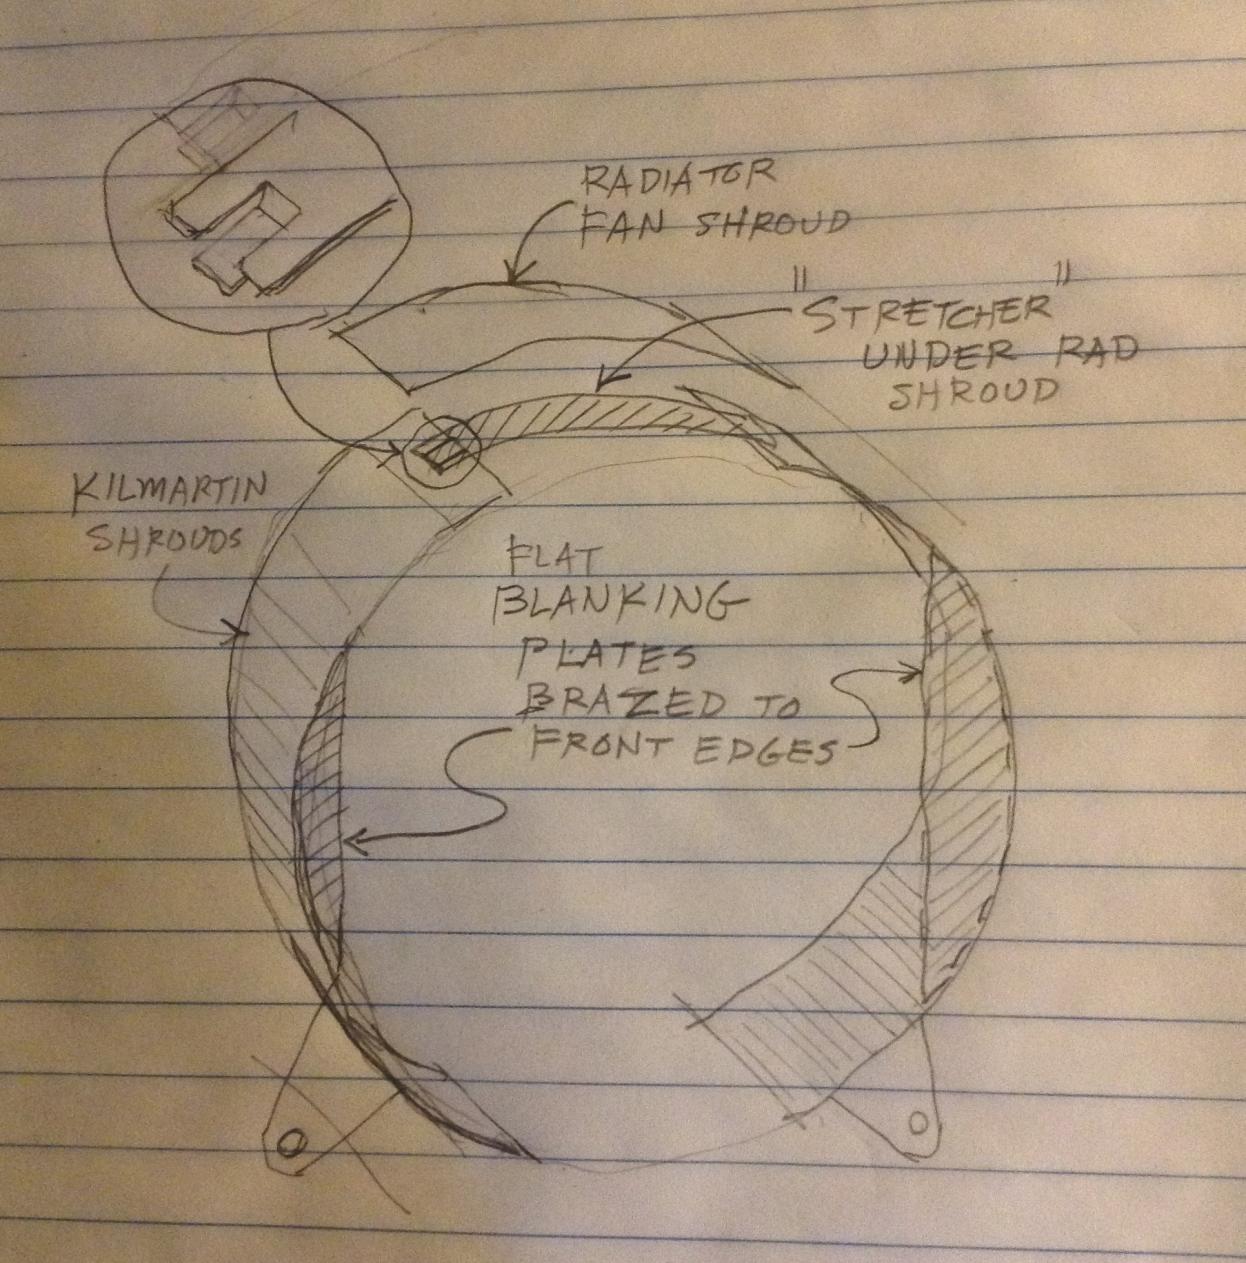 RADIATOR
FAN SHROUD
"STRETCHER"
UNDER RAD
SHROUD
KILMARTIN
SHROUDS
FLAT
BLANKING
PLATES
BRAZED TO
FRONT EDGES